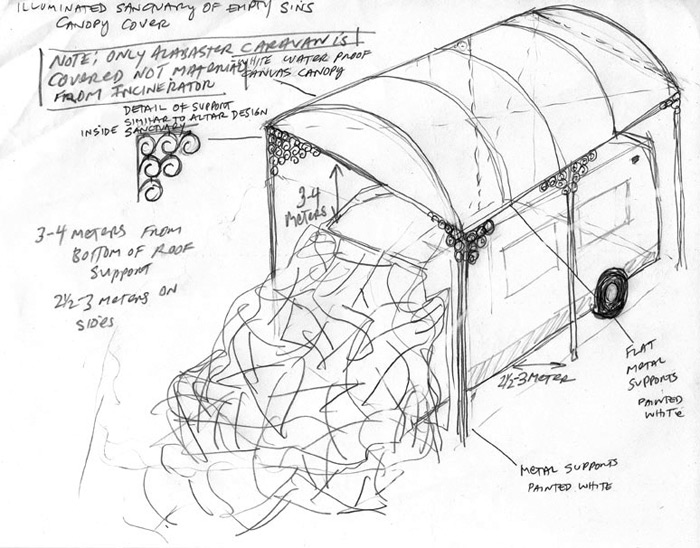 ILLUMINATED SANCTUARY OF EMPTY SINS
CANOPY COVER
NOTE; ONLY ALABASTER CARAVAN IS
COVERED NOT MATERIAL
FROM INCINERATOR
WHITE WATER PROOF
CANVAS CANOPY
DETAIL OF SUPPORT
SIMILAR TO ALTAR DESIGN
INSIDE SANCTUARY
3-4
METERS
3-4 METERS FROM
BOTTOM OF ROOF
SUPPORT
2½-3 METERS ON
SIDES
2½-3 METER
FLAT
METAL
SUPPORTS
PAINTED
WHITE
METAL SUPPORTS
PAINTED WHITE